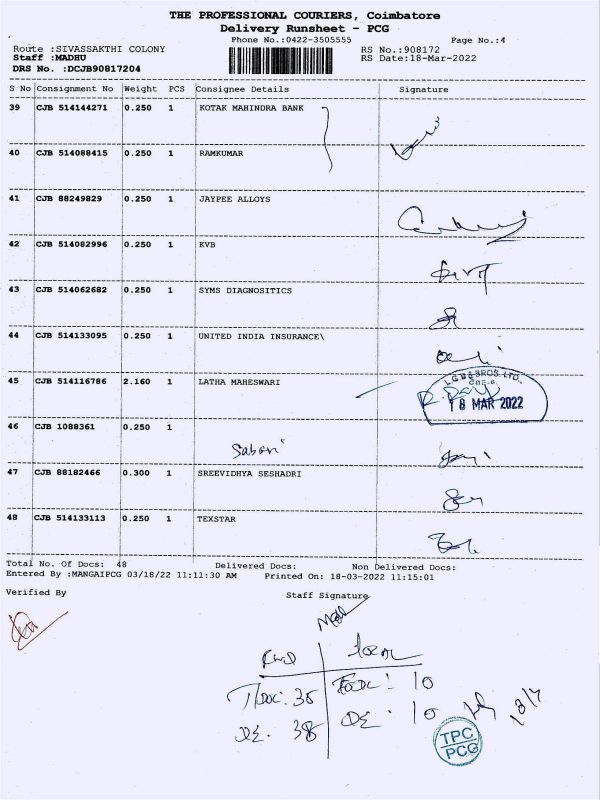 THE PROFESSIONAL COURIERS, Coimbatore
Delivery Runsheet - PCG
Phone No.:0422-3505555 Page No.:4
Route :SIVASSAKTHI COLONY RS No.:908172
Staff :MADHU RS Date:18-Mar-2022
DRS No. :DCJB90817204
S No Consignment No Weight PCS Consignee Details Signature
39 CJB 514144271 0.250 1 KOTAK MAHINDRA BANK
40 CJB 514088415 0.250 1 RAMKUMAR
41 CJB 88249829 0.250 1 JAYPEE ALLOYS
42 CJB 514082996 0.250 1 KVB
43 CJB 514062682 0.250 1 SYMS DIAGNOSITICS
44 CJB 514133095 0.250 1 UNITED INDIA INSURANCE\
45 CJB 514116786 2.160 1 LATHA MAHESWARI
18 MAR 2022
46 CJB 1088361 0.250 1
Sabari
47 CJB 88182466 0.300 1 SREEVIDHYA SESHADRI
48 CJB 514133113 0.250 1 TEXSTAR
Total No. Of Docs: 48 Delivered Docs: Non Delivered Docs:
Entered By :MANGAIPCG 03/18/22 11:11:30 AM Printed On: 18-03-2022 11:15:01
Verified By Staff Signature
TPC
PCG